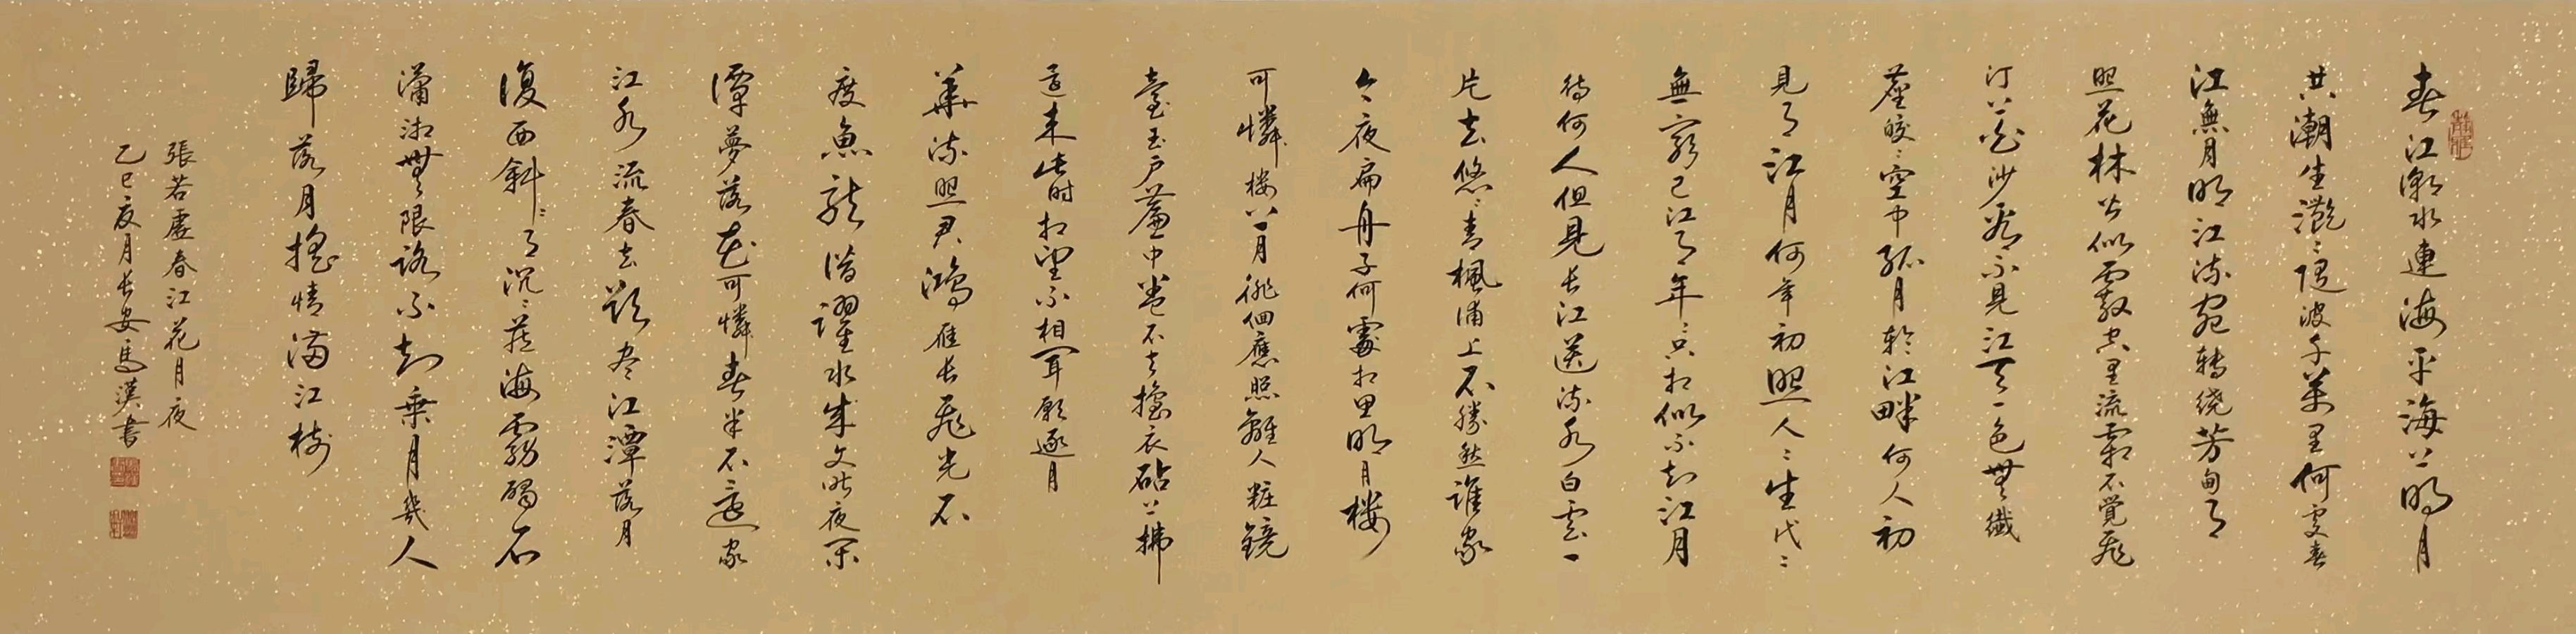 春江潮水連海平海上明月
共潮生灧灧隨波千萬里何處春
江無月明江流宛轉繞芳甸月
照花林皆似霰空里流霜不覺飛
汀上白沙看不見江天一色無纖
塵皎皎空中孤月輪江畔何人初
見月江月何年初照人人生代代
無窮已江月年年只相似不知江月
待何人但見長江送流水白雲一
片去悠悠青楓浦上不勝愁誰家
今夜扁舟子何處相思明月楼
可憐楼上月徘徊應照離人粧鏡
臺玉戶簾中卷不去擣衣砧上拂
還来此時相望不相聞願逐月
華流照君鴻雁長飛光不
度魚龍潛躍水成文昨夜閑
潭夢落花可憐春半不還家
江水流春去欲盡江潭落月
復西斜斜月沉沉藏海霧碣石
瀟湘無限路不知乘月幾人
歸落月搖情滿江樹
張若虛春江花月夜
乙巳夏月長安馬漢書